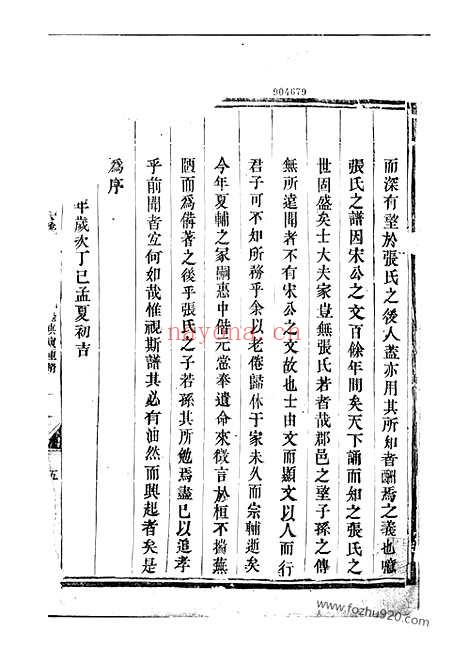 904679
而深有望於張氏之後人蓋亦用其所知者酬焉之義也噫
張氏之譜因宋公之文百餘年間矣天下誦而知之張氏之
世固盛矣士大夫家豈無張氏若者哉郡邑之望子孫之傳
無所遺聞者不有宋公之文故也士由文而顯文以人而行
君子可不知所務乎余以老倦歸休于家未久而宗輔逝矣
今年夏輔之家嗣惠中偕元愷奉遺命來徵言於桓不揣蕪
陋而為備著之後乎張氏之子若孫其所勉焉盡已以追孝
乎前聞者宜何如哉惟視斯譜其必有油然而興起者矣是
為序
年歲次丁巳孟夏初吉
五
nayona.cn
www.fozhu920.com